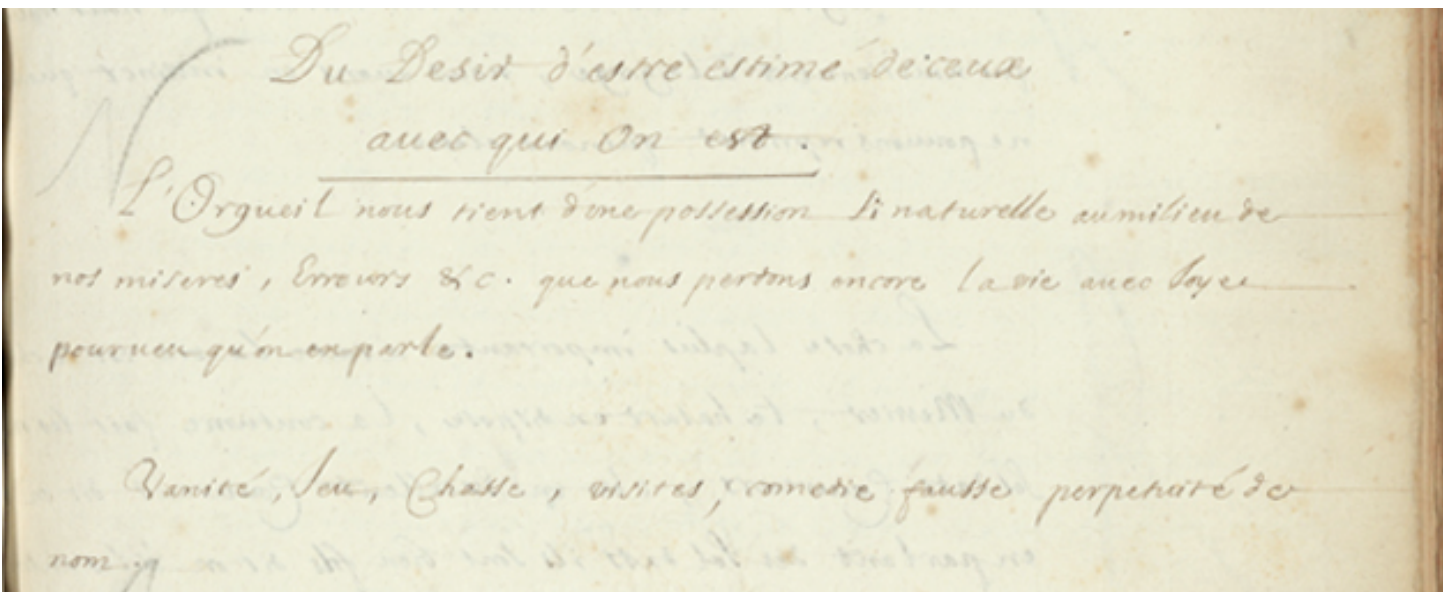 Du Desir d'estre estimé de ceux
avec qui On est.
L'Orgueil nous tient d'une possession si naturelle au milieu de
nos miseres, Erreurs &c. que nous perdons encore la vie avec Joye
pourueu qu'on en parle.
Vanité, Jeu, Chasse, visites, comedie fausse perpetuité de
nom.